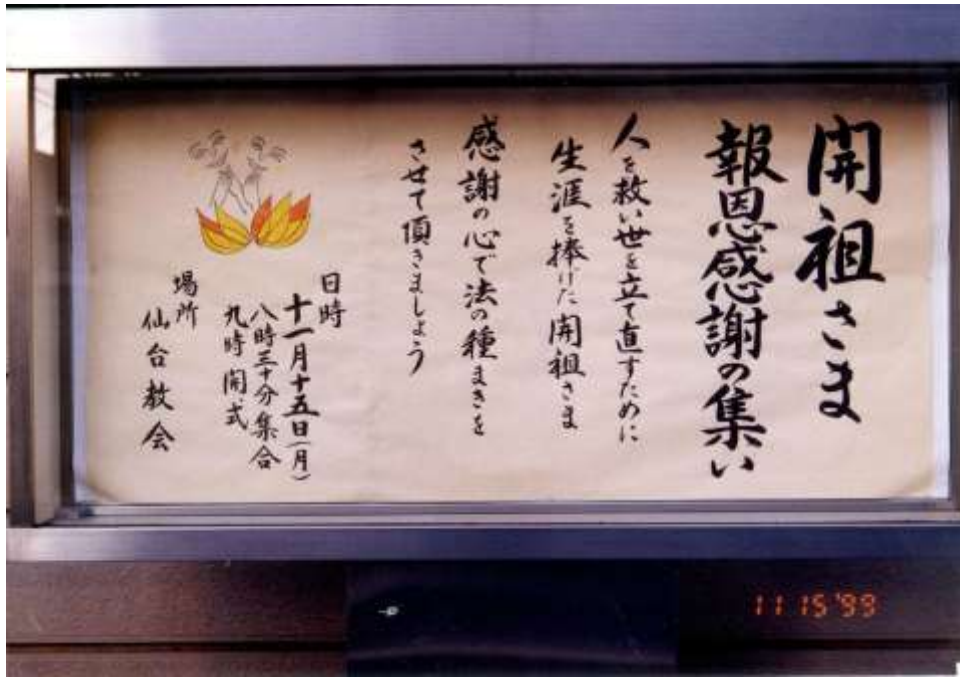 開祖さま
報恩感謝の集い
人を救い世を立て直すために
生涯を捧げた開祖さま
感謝の心で法の種まきを
させて頂きましょう
日時
十一月十五日(月)
八時三十分集合
九時開式
場所
仙台教会
11 15 '99